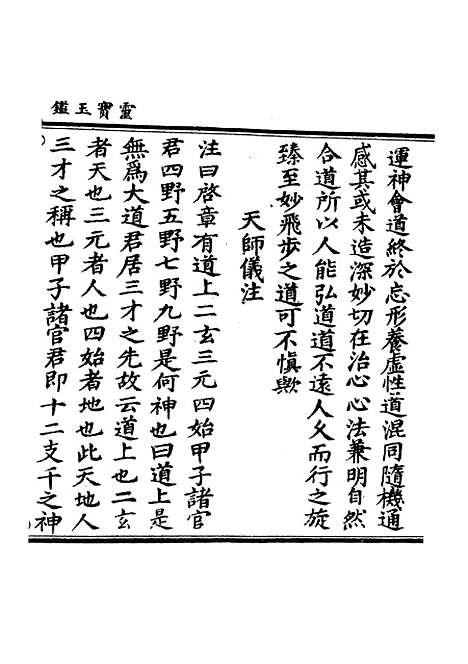 靈寶玉鑑
運神會道終於忘形養虛性道混同隨機通
感其或未造深妙切在治心心法兼明自然
合道所以人能弘道道不遠人久而行之旋
臻至妙飛步之道可不慎歟
天師儀注
注曰啓章有道上二玄三元四始甲子諸官
君四野五野七野九野是何神也曰道上是
無爲大道君居三才之先故云道上也二玄
者天也三元者人也四始者地也此天地人
三才之稱也甲子諸官君即十二支干之神